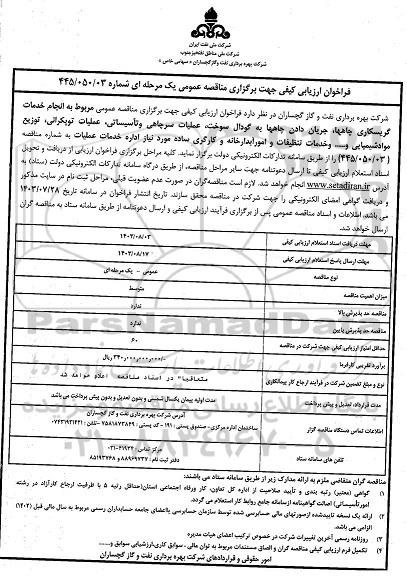 شرکت ملی نفت ایران
شرکت ملی مناطق نفتخیز جنوب
شرکت بهره برداری نفت و گاز گچساران « سهامی خاص »
فراخوان ارزیابی کیفی جهت برگزاری مناقصه عمومی یک مرحله ای شماره ۴۴۵/۰۵۰/۰۳
شرکت بهره برداری نفت و گاز گچساران در نظر دارد فراخوان ارزیابی کیفی جهت برگزاری مناقصه عمومی مربوط به انجام خدمات
گریسکاری چاهها، جریان دادن چاهها به گودال سوخت، عملیات سرچاهی وتأسیساتی، عملیات توپکرانی، توزیع
موادشیمیایی و.... وخدمات تنظیفات و امورآبدارخانه و کارگری ساده مورد نیاز اداره خدمات عملیات به شماره مناقصه
(۴۴۵/۰۵۰/۰۳) را از طریق سامانه تدارکات الکترونیکی دولت برگزار نمایند. کلیه مراحل برگزاری فراخوان ارزیابی از دریافت و تحویل
اسناد استعلام ارزیابی کیفی تا ارسال دعوتنامه جهت سایر مراحل مناقصه، از طریق درگاه سامانه تدارکات الکترونیکی دولت (ستاد) به
آدرس www.setadiran.ir انجام خواهد شد. لازم است مناقصه‌گران در صورت عدم عضویت قبلی، مراحل ثبت نام در سایت مذکور
و دریافت گواهی امضای الکترونیکی را جهت شرکت در مناقصه محقق سازند. تاریخ انتشار فراخوان در سامانه تاریخ ۱۴۰۳/۰۷/۲۸
می باشد. اطلاعات و اسناد مناقصه عمومی پس از برگزاری فرآیند ارزیابی کیفی و ارسال دعوتنامه از طریق سامانه ستاد به مناقصه گران
ارسال خواهد شد.
مهلت دریافت اسناد استعلام ارزیابی کیفی ۱۴۰۳/۰۸/۰۳
مهلت ارسال پاسخ استعلام ارزیابی کیفی ۱۴۰۳/۰۸/۱۷
نوع مناقصه عمومی - یک مرحله‌ای
میزان اهمیت مناقصه متوسط
مناقصه حد پذیرش بالا ندارد
مناقصه حد پذیرش پایین ندارد
حداقل امتیاز ارزیابی کیفی جهت شرکت در مناقصه ۶۰
برآورد تقریبی کارفرما ریال
نوع و مبلغ تضمین شرکت در فرآیند ارجاع کار پیمانکاری متعاقباً" در اسناد مناقصه اعلام خواهد شد
مدت قرارداد، تعدیل و پیش پرداخت مدت اولیه پیمان یکسال شمسی و بدون تعدیل و بدون پیش پرداخت می باشد
اطلاعات تماس دستگاه مناقصه گزار آدرس شرکت بهره برداری نفت و گاز گچساران
ساختمان اداره مرکزی - صندوق پستی ۱۹۱ - کد پستی
تلفن های سامانه ستاد مرکز تماس ۴۱۹۳۴-۰۲۱
دفتر ثبت نام : ۸۸۹۶۹۷۳۷ و ۸۵۱۹۳۷۶۸
مناقصه گران متقاضی ملزم به ارائه مدارک زیر از طریق سامانه ستاد می باشند:
۱) گواهی (معتبر) رتبه بندی و تأیید صلاحیت از اداره کل تعاون، کار ورفاه اجتماعی استان(حداقل رتبه ۵ با ظرفیت ارجاع کارآزاد در رشته
امورتأسیساتی) اصالت گواهینامه ازسامانه جامع روابط کار استعلام می گردد.
۲) ارائه یک نسخه تاییدشده ازصورتهای مالی حسابرسی شده توسط سازمان حسابرسی یااعضای جامعه حسابداران رسمی مربوط به سال مالی قبل (۱۴۰۲)
الزامی می باشد.
۳) روزنامه رسمی آخرین تغییرات شرکت در خصوص ترکیب اعضای هیات مدیره
۴) تکمیل فرم ارزیابی کیفی مناقصه گران و الصاق مستندات مربوط به توان مالی ، سوابق کاری،ارزشیابی سوابق و.....
امور حقوقی و قراردادهای شرکت بهره برداری نفت و گاز گچساران